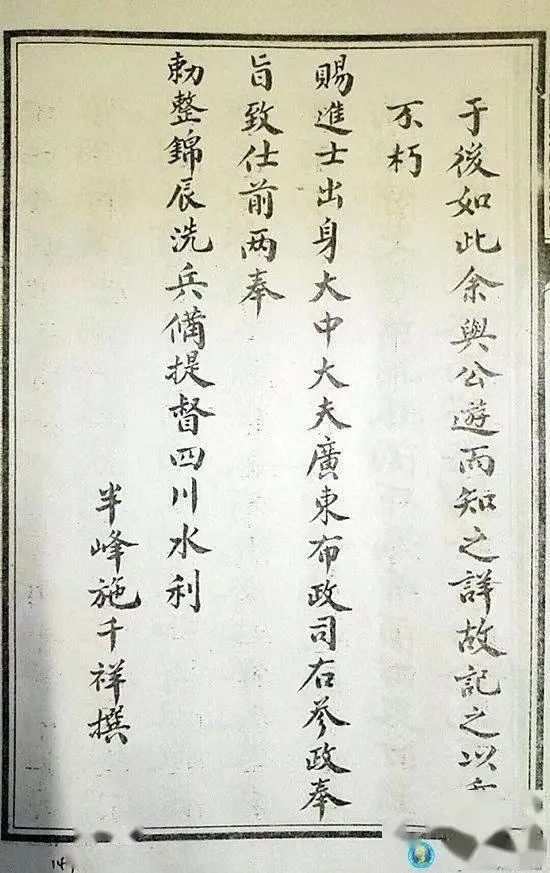 于後如此余與公遊而知之詳故記之以
不朽
賜進士出身大中大夫廣東布政司右參政奉
旨致仕前两奉
勅整錦辰洗兵備提督四川水利
半峰施千祥撰
14